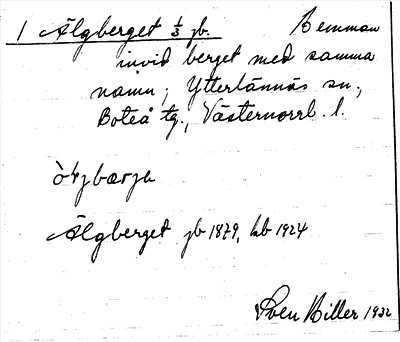 1 Älgberget 1/3 jb. Hemman
invid berget med samma
namn; Ytterlännäs sn.,
Boteå tg., Västernorrl. l.
Älgberget jb 1879, kb 1924
Sven Biller 1932